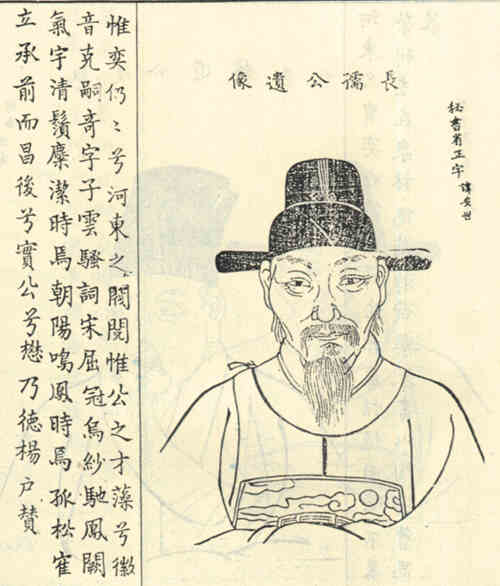 秘書省正字 諱安世
長孺公遺像
惟奕仍〻兮河東之閥閱惟公之才藻兮徽
音克嗣奇字子雲騷詞宋屈冠烏紗馳鳳闕
氣宇清鬚麋潔時焉朝陽鳴鳳時焉孤松寉
立承前而昌後兮實公兮懋乃德楊戶贊